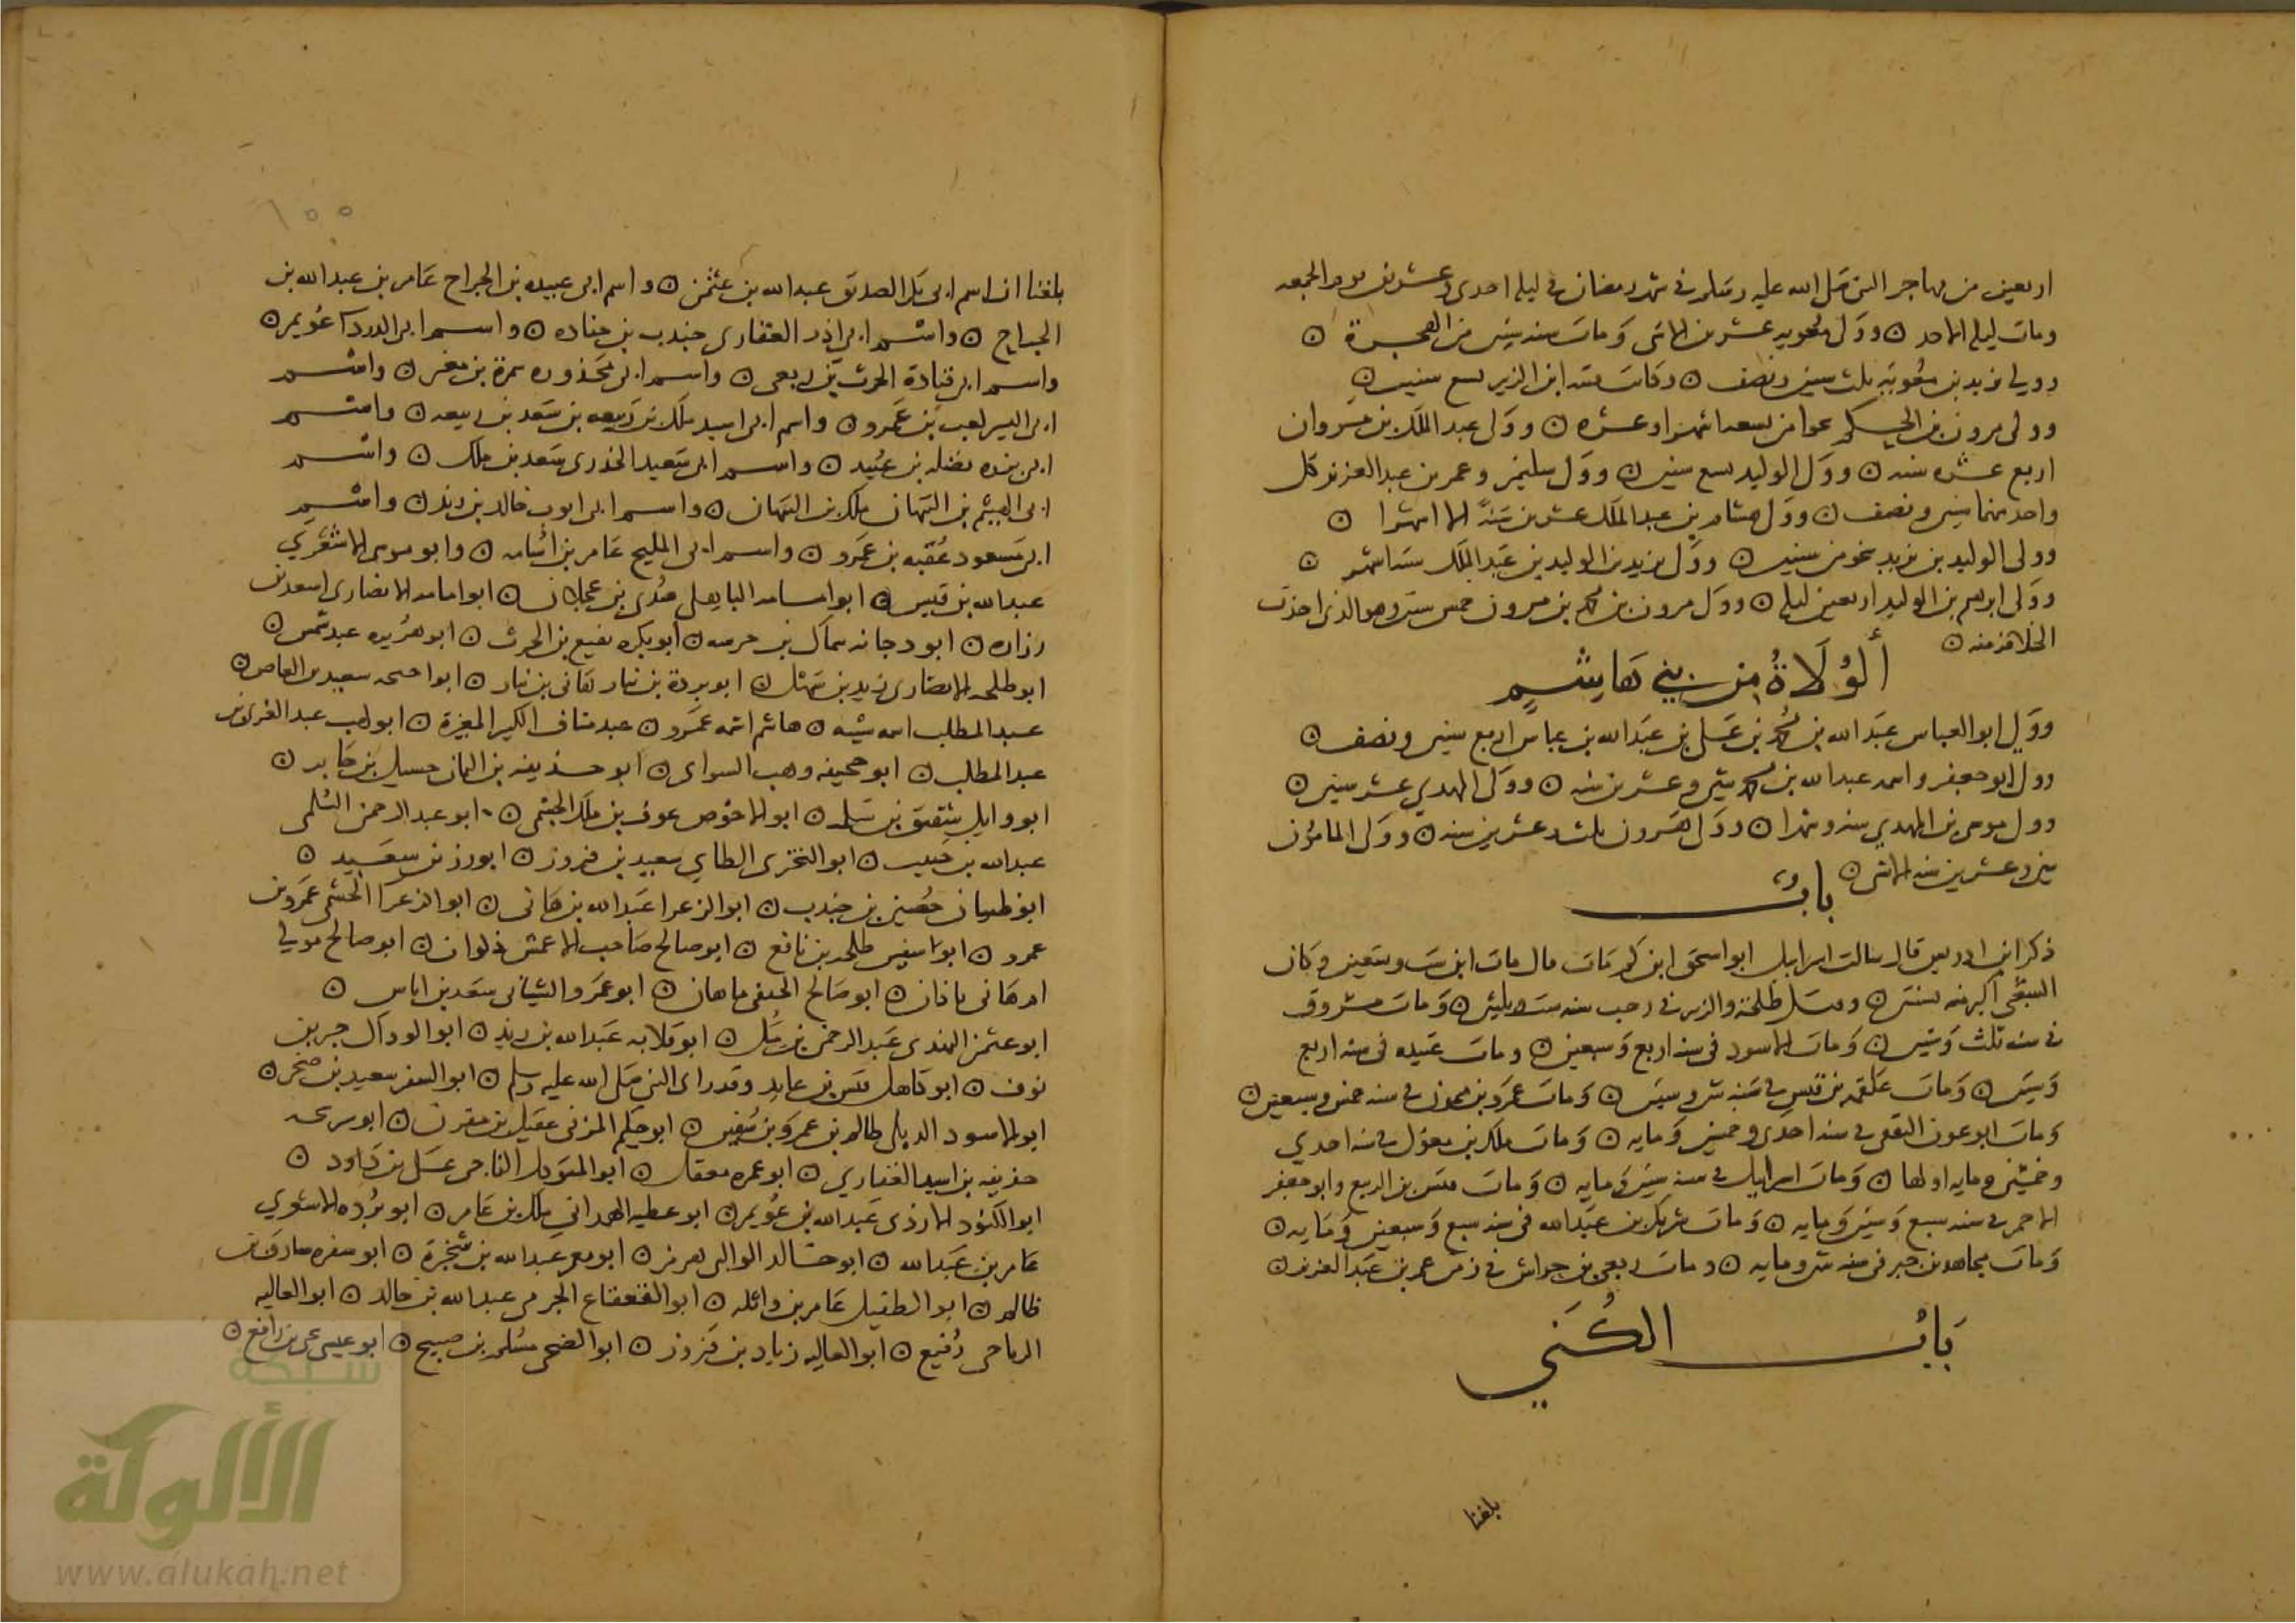 اربعين من مهاجر النبي صلى الله عليه وسلم في شهر رمضان في ليلة احدى وعشرين يوم الجمعه
ومات ليله الاحد ۞ وولى معويه عشرين الا شى ومات سنه ستين من الهجرة ۞
وولي يزيد بن معوية ثلث سنين ونصف ۞ وكانت فتنه ابن الزبير تسع سنين ۞
وولى مرون بن الحكم نحوا من تسعه اشهر او عشره ۞ وولى عبد الملك بن مروان
اربع عشره سنه ۞ وولى الوليد تسع سنين ۞ وولى سليمن وعمر بن عبد العزيز كل
واحد منهما سنين ونصف ۞ وولى هشام بن عبد الملك عشرين سنة الا اشهرا ۞
وولى الوليد بن يزيد نحو من سنتين ۞ وولى يزيد بن الوليد بن عبد الملك ستة اشهر ۞
وولى ابرهيم بن الوليد اربعين ليله ۞ وولى مرون بن محمد بن مرون خمس سنين وهو الذي اخذت
الخلافه منه ۞
ألولاة من بني هاشم
وولي ابو العباس عبد الله بن محمد بن علي بن عبد الله بن عباس اربع سنين ونصف ۞
وولى ابو جعفر واسمه عبد الله بن محمد ثنتي وعشرين سنه ۞ وولى المهدي عشر سنين ۞
وولى موسى بن المهدي سنه وشهرا ۞ وولى هرون ثلث وعشرين سنه ۞ وولى المامون
وعشرين سنه الا شى ۞
باب
ذكر ابن ادريس قال سالت اسرايل ابو اسحق ابن كم مات قال مات ابن ست وتسعين وكان
الشعبي اكبر منه بسنتين ۞ وقتل طلحة والزبير في رجب سنه ست وثلثين ۞ ومات مسروق
في سنه ثلث وستين ۞ ومات الاسود في سنه اربع وسبعين ۞ ومات عبيده في سنه اربع
وسبعين ۞ ومات علقمه بن قيس في سنه ثنتين وستين ۞ ومات عمرو بن ميمون في سنه خمس وسبعين ۞
ومات ابو عون الثقفي في سنه احدى وخمسين ومايه ۞ ومات ملك بن مغول في سنه احدي
وخمسين ومايه اولها ۞ ومات اسرايل في سنه ستين ومايه ۞ ومات قيس بن الربيع وابو جعفر
الاحمر في سنه سبع وستين ومايه ۞ ومات شريك بن عبد الله في سنه سبع وسبعين ومايه ۞
ومات مجاهد بن جبر في سنه ثنتين ومايه ۞ ومات ربعي بن حراش في زمن عمر بن عبد العزيز ۞
باب الكنى
بلغنا
١٥٥
بلغنا ان اسم ابي بكر الصديق عبد الله بن عثمن ۞ واسم ابي عبيده بن الجراح عامر بن عبد الله بن
الجراح ۞ واسم ابي ذر الغفاري جندب بن جناده ۞ واسم ابي الدرداء عويمر ۞
واسم ابي قتادة الحرث بن ربعي ۞ واسم ابي محذوره سمرة بن معير ۞ واسم
ابي اليسر كعب بن عمرو ۞ واسم ابي اسيد ملك بن ربيعه بن سعد بن ربيعه ۞ واسم
ابي برزه نضله بن عبيد ۞ واسم ابي سعيد الخدري سعد بن ملك ۞ واسم
ابي الهيثم بن التيهان ملك بن التيهان ۞ واسم ابي ايوب خالد بن زيد ۞ واسم
ابي مسعود عقبه بن عمرو ۞ واسم ابي المليح عامر بن اسامه ۞ وابو موسى الاشعري
عبد الله بن قيس ۞ ابو امامه الباهلي صدي بن عجلان ۞ ابو امامه الانصاري اسعد بن
زراره ۞ ابو دجانه سماك بن خرشه ۞ ابو بكره نفيع بن الحرث ۞ ابو هريره عبد شمس ۞
ابو طلحه الانصاري زيد بن سهل ۞ ابو بردة بن نيار هاني بن نيار ۞ ابو احيحه سعيد بن العاص ۞
عبد المطلب اسمه شيبه ۞ هاشم اسمه عمرو ۞ عبد مناف الكبير المغيرة ۞ ابو لهب عبد العزى بن
عبد المطلب ۞ ابو جحيفه وهب السواي ۞ ابو حذيفه بن اليمان حسيل بن جابر ۞
ابو وايل شقيق بن سلمه ۞ ابو الاحوص عوف بن ملك الجشمي ۞ ابو عبد الرحمن السلمي
عبد الله بن حبيب ۞ ابو البختري الطاي سعيد بن فيروز ۞ ابو رزين سعيد ۞
ابو ظبيان حصين بن جندب ۞ ابو الزعرا عبد الله بن هاني ۞ ابو الزعرا الجشمي عمرو بن
عمرو ۞ ابو سفين طلحه بن نافع ۞ ابو صالح صاحب الاعمش ذكوان ۞ ابو صالح مولي
ام هاني باذان ۞ ابو صالح الحنفي ماهان ۞ ابو عمرو الشيباني سعد بن اياس ۞
ابو عثمن الهندي عبد الرحمن بن مل ۞ ابو قلابه عبد الله بن زيد ۞ ابو الوداك جبر بن
نوف ۞ ابو كاهل قيس بن عايذ وقد راى النبي صلى الله عليه وسلم ۞ ابو السفر سعيد بن صخر ۞
ابو الاسود الديلي ظالم بن عمرو بن سفين ۞ ابو حكيم المزني عقيل بن مقرن ۞ ابو سريحه
حذيفه بن اسيد الغفاري ۞ ابو عمره معقل ۞ ابو المتوكل الناجي علي بن داود ۞
ابو الكنود الازدي عبد الله بن عويمر ۞ ابو عطيه الهمداني ملك بن عامر ۞ ابو برده الاشعري
عامر بن عبد الله ۞ ابو خالد الوالبي هرمز ۞ ابو معمر عبد الله بن سخبرة ۞ ابو صفره سارق بن
ظالم ۞ ابو الطفيل عامر بن واثله ۞ ابو القعقاع الجرمي عبد الله بن خالد ۞ ابو العاليه
الرياحي رفيع ۞ ابو العاليه زياد بن فيروز ۞ ابو الضحى مسلم بن صبيح ۞ ابو عيسى يحيى بن رافع ۞
شبكة
الألوكة
www.alukah.net